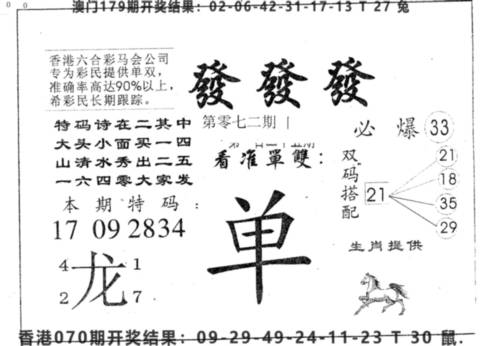 澳门179期开奖结果：02-06-42-31-17-13 T 27 兔
香港六合彩马会公司
专为彩民提供单双，
准确率高达90%以上，
希彩民长期跟踪。
發發發
特码诗在二其中
大头小面买一四
山清水秀出二五
一六四零大家发
第零七二期
看准單雙：
必爆 33
双码搭配
21
21
18
35
29
本期特码：
17 09 28 34
单
4 1
龙
2 7
生肖提供
香港070期开奖结果：09-29-49-24-11-23 T 30 鼠.